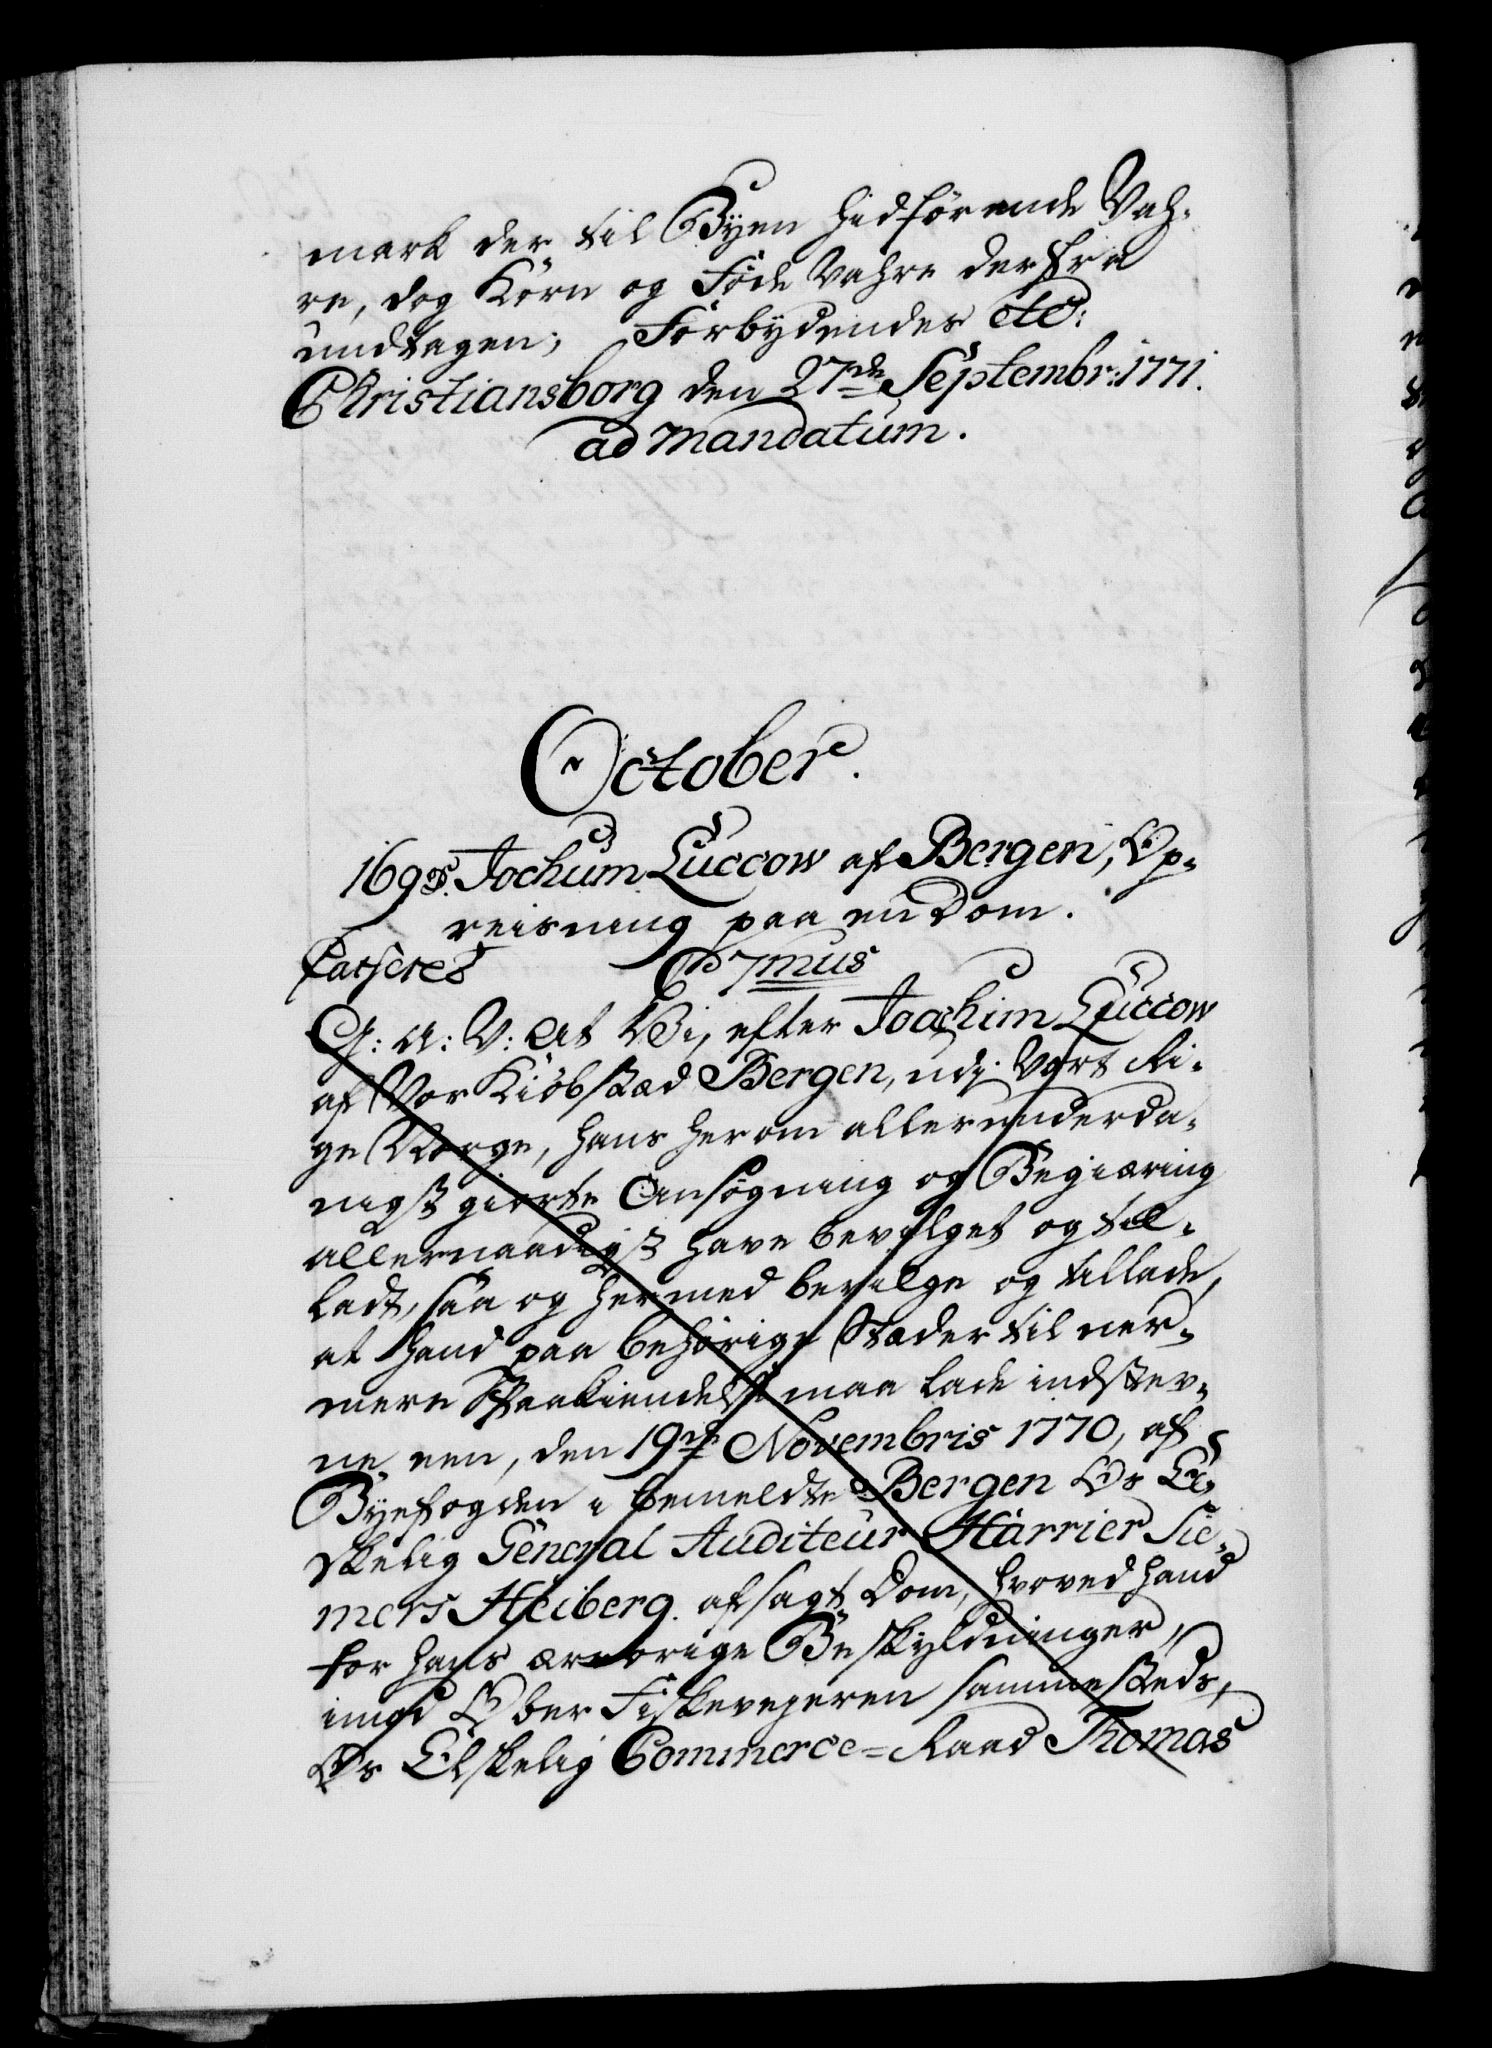 mark der til Byen hidførende Vah-
re, dog Korn og Føde Vahre derfra
undtagen; Forbydendes etc:
Christiansborg den 27de Septembr: 1771.
ad mandatum.
October.
169. Jochum Luccow af Bergen, Op-
reisning paa en Dom.
Casseret C 7mus
G: A: V: At Vi, efter Joachim Luccow
af Vor Kiøbstæd Bergen, udj Vort Ri-
ge Norge, hans herom allerunderda-
nigst giorte Ansøgning og Begiæring
allernaadigst have bevilget og til-
ladt, saa og hermed bevilge og tillade,
at hand paa behørige Stæder til ner-
mere Paakiendelse maa lade indstev-
ne een, den 19de Novembris 1770, af
Byefogden i bemeldte Bergen Os El-
skelig General Auditeur Harrier Sie-
mers Heiberg afsagt Dom, hvorved hand
for hans ærerørige Beskyldninger,
imod Ober Fiskevejeren sammesteds,
Os Elskelig Commerce-Raad Thomas